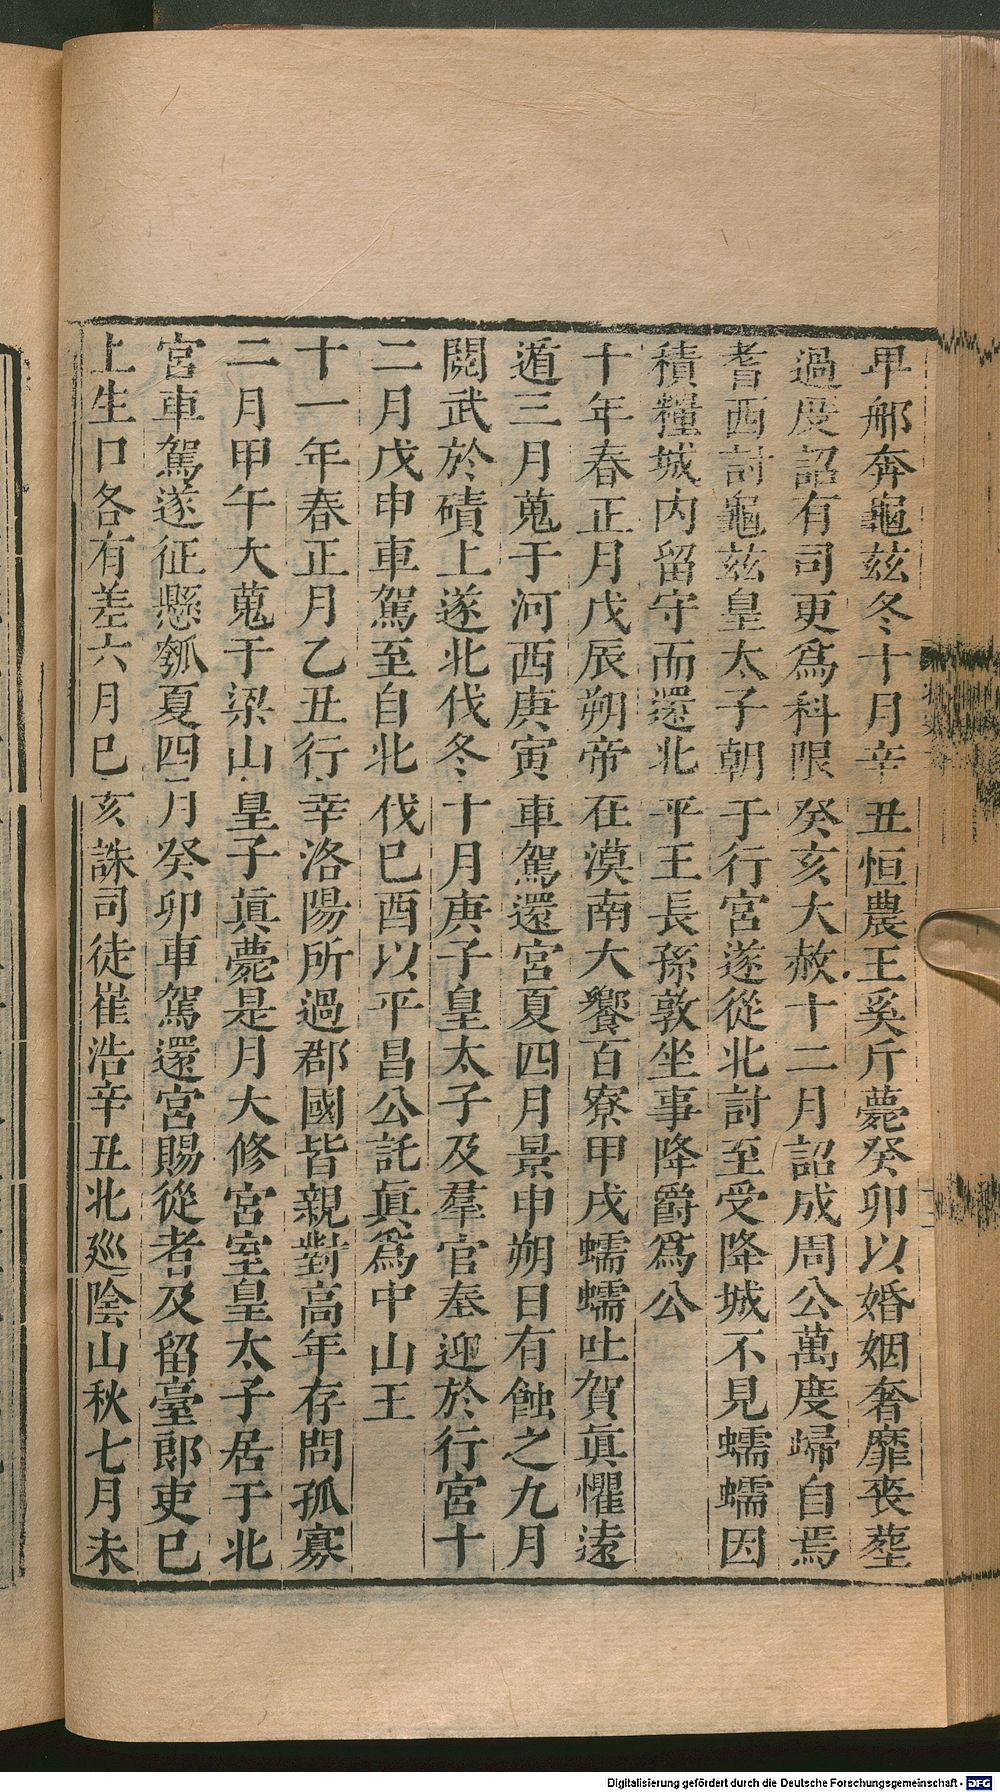 甲邲奔龜茲冬十月辛丑恒農王奚斤薨癸卯以婚姻奢靡喪葬
過度詔有司更爲科限癸亥大赦十二月詔成周公萬度歸自焉
耆西討龜茲皇太子朝于行宮遂從北討至受降城不見蠕蠕因
積糧城內留守而還北平王長孫敦坐事降爵爲公
十年春正月戊辰朔帝在漠南大饗百寮甲戌蠕蠕吐賀眞懼遠
遁三月蒐于河西庚寅車駕還宮夏四月景申朔日有蝕之九月
閱武於磧上遂北伐冬十月庚子皇太子及羣官奉迎於行宮十
二月戊申車駕至自北伐巳酉以平昌公託眞爲中山王
十一年春正月乙丑行幸洛陽所過郡國皆親對高年存問孤寡
二月甲午大蒐于梁山皇子眞薨是月大修宮室皇太子居于北
宮車駕遂征懸瓠夏四月癸卯車駕還宮賜從者及留臺郎吏巳
上生口各有差六月巳亥誅司徒崔浩辛丑北巡陰山秋七月未
Digitalisierung gefördert durch die Deutsche Forschungsgemeinschaft - DFG